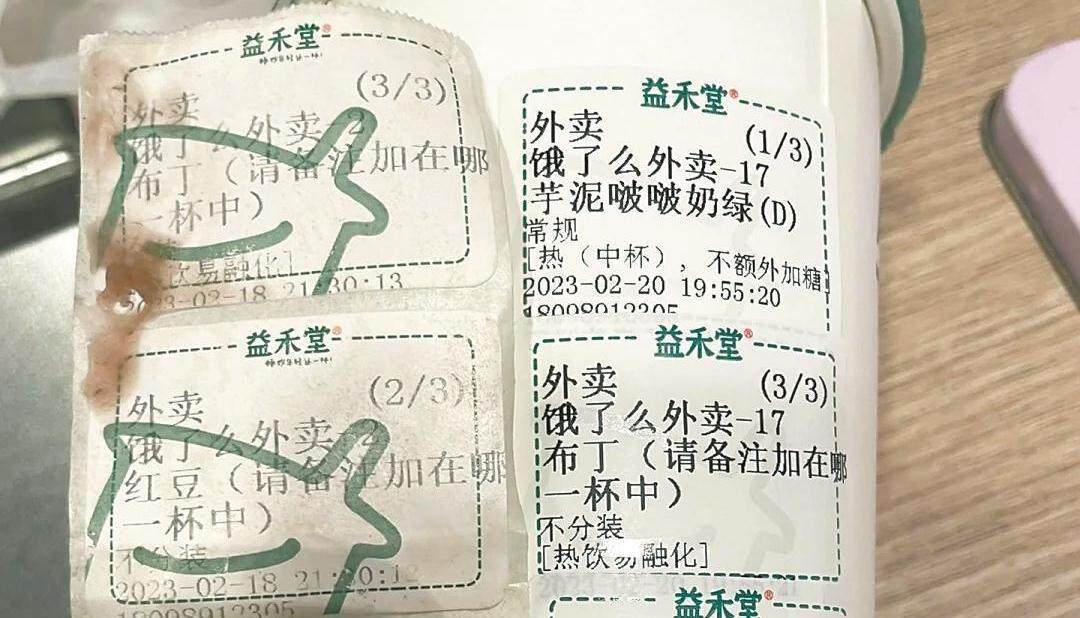 益禾堂®
(3/3)
外卖
饿了么外卖-2
布丁（请备注加在哪
一杯中）
饮易融化]
2023-02-18 21:30:13
益禾堂®
(2/3)
外卖
饿了么外卖-2
红豆（请备注加在哪
一杯中）
不分装
2023-02-18 21:30:12
18098912305
益禾堂®
外卖 (1/3)
饿了么外卖-17
芋泥啵啵奶绿(D)
常规
[热（中杯）, 不额外加糖]
2023-02-20 19:55:20
18098912305
益禾堂®
外卖 (3/3)
饿了么外卖-17
布丁（请备注加在哪
一杯中）
不分装
[热饮易融化]
2023-02-20 19:55:21
益禾堂®